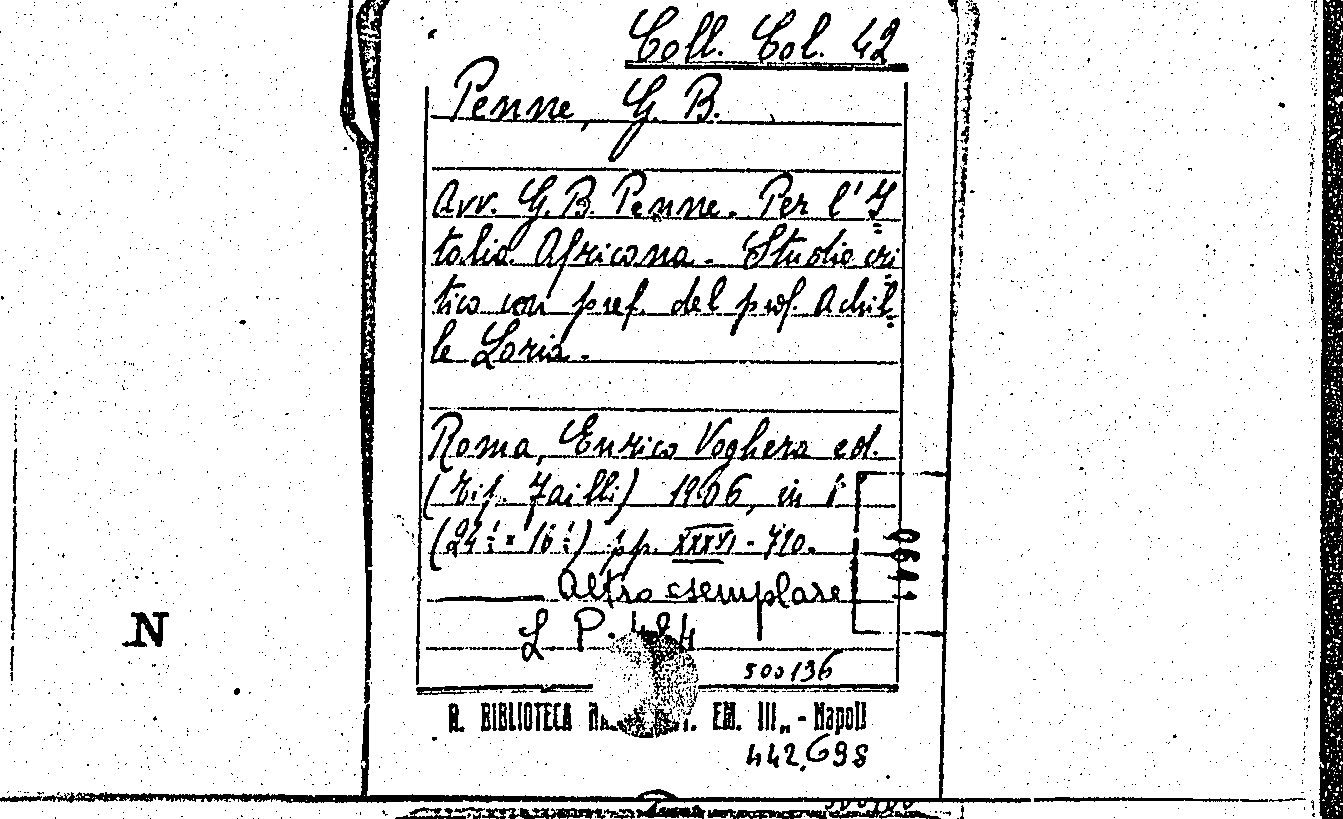 Coll. Col. 42
Penne, G. B.
Avv. G. B. Penne. Per l'I
talia Africana. Studio cri
tico con pref. del prof. Achil
le Loria.
Roma, Enrico Voghera ed.
(tip. Failli) 1906, in 8°
(24½ × 16½) pp. XXXVI - 710.
Altro esemplare
L P. 484
500136
R. BIBLIOTECA EM. III„ - Napoli
442,698
N